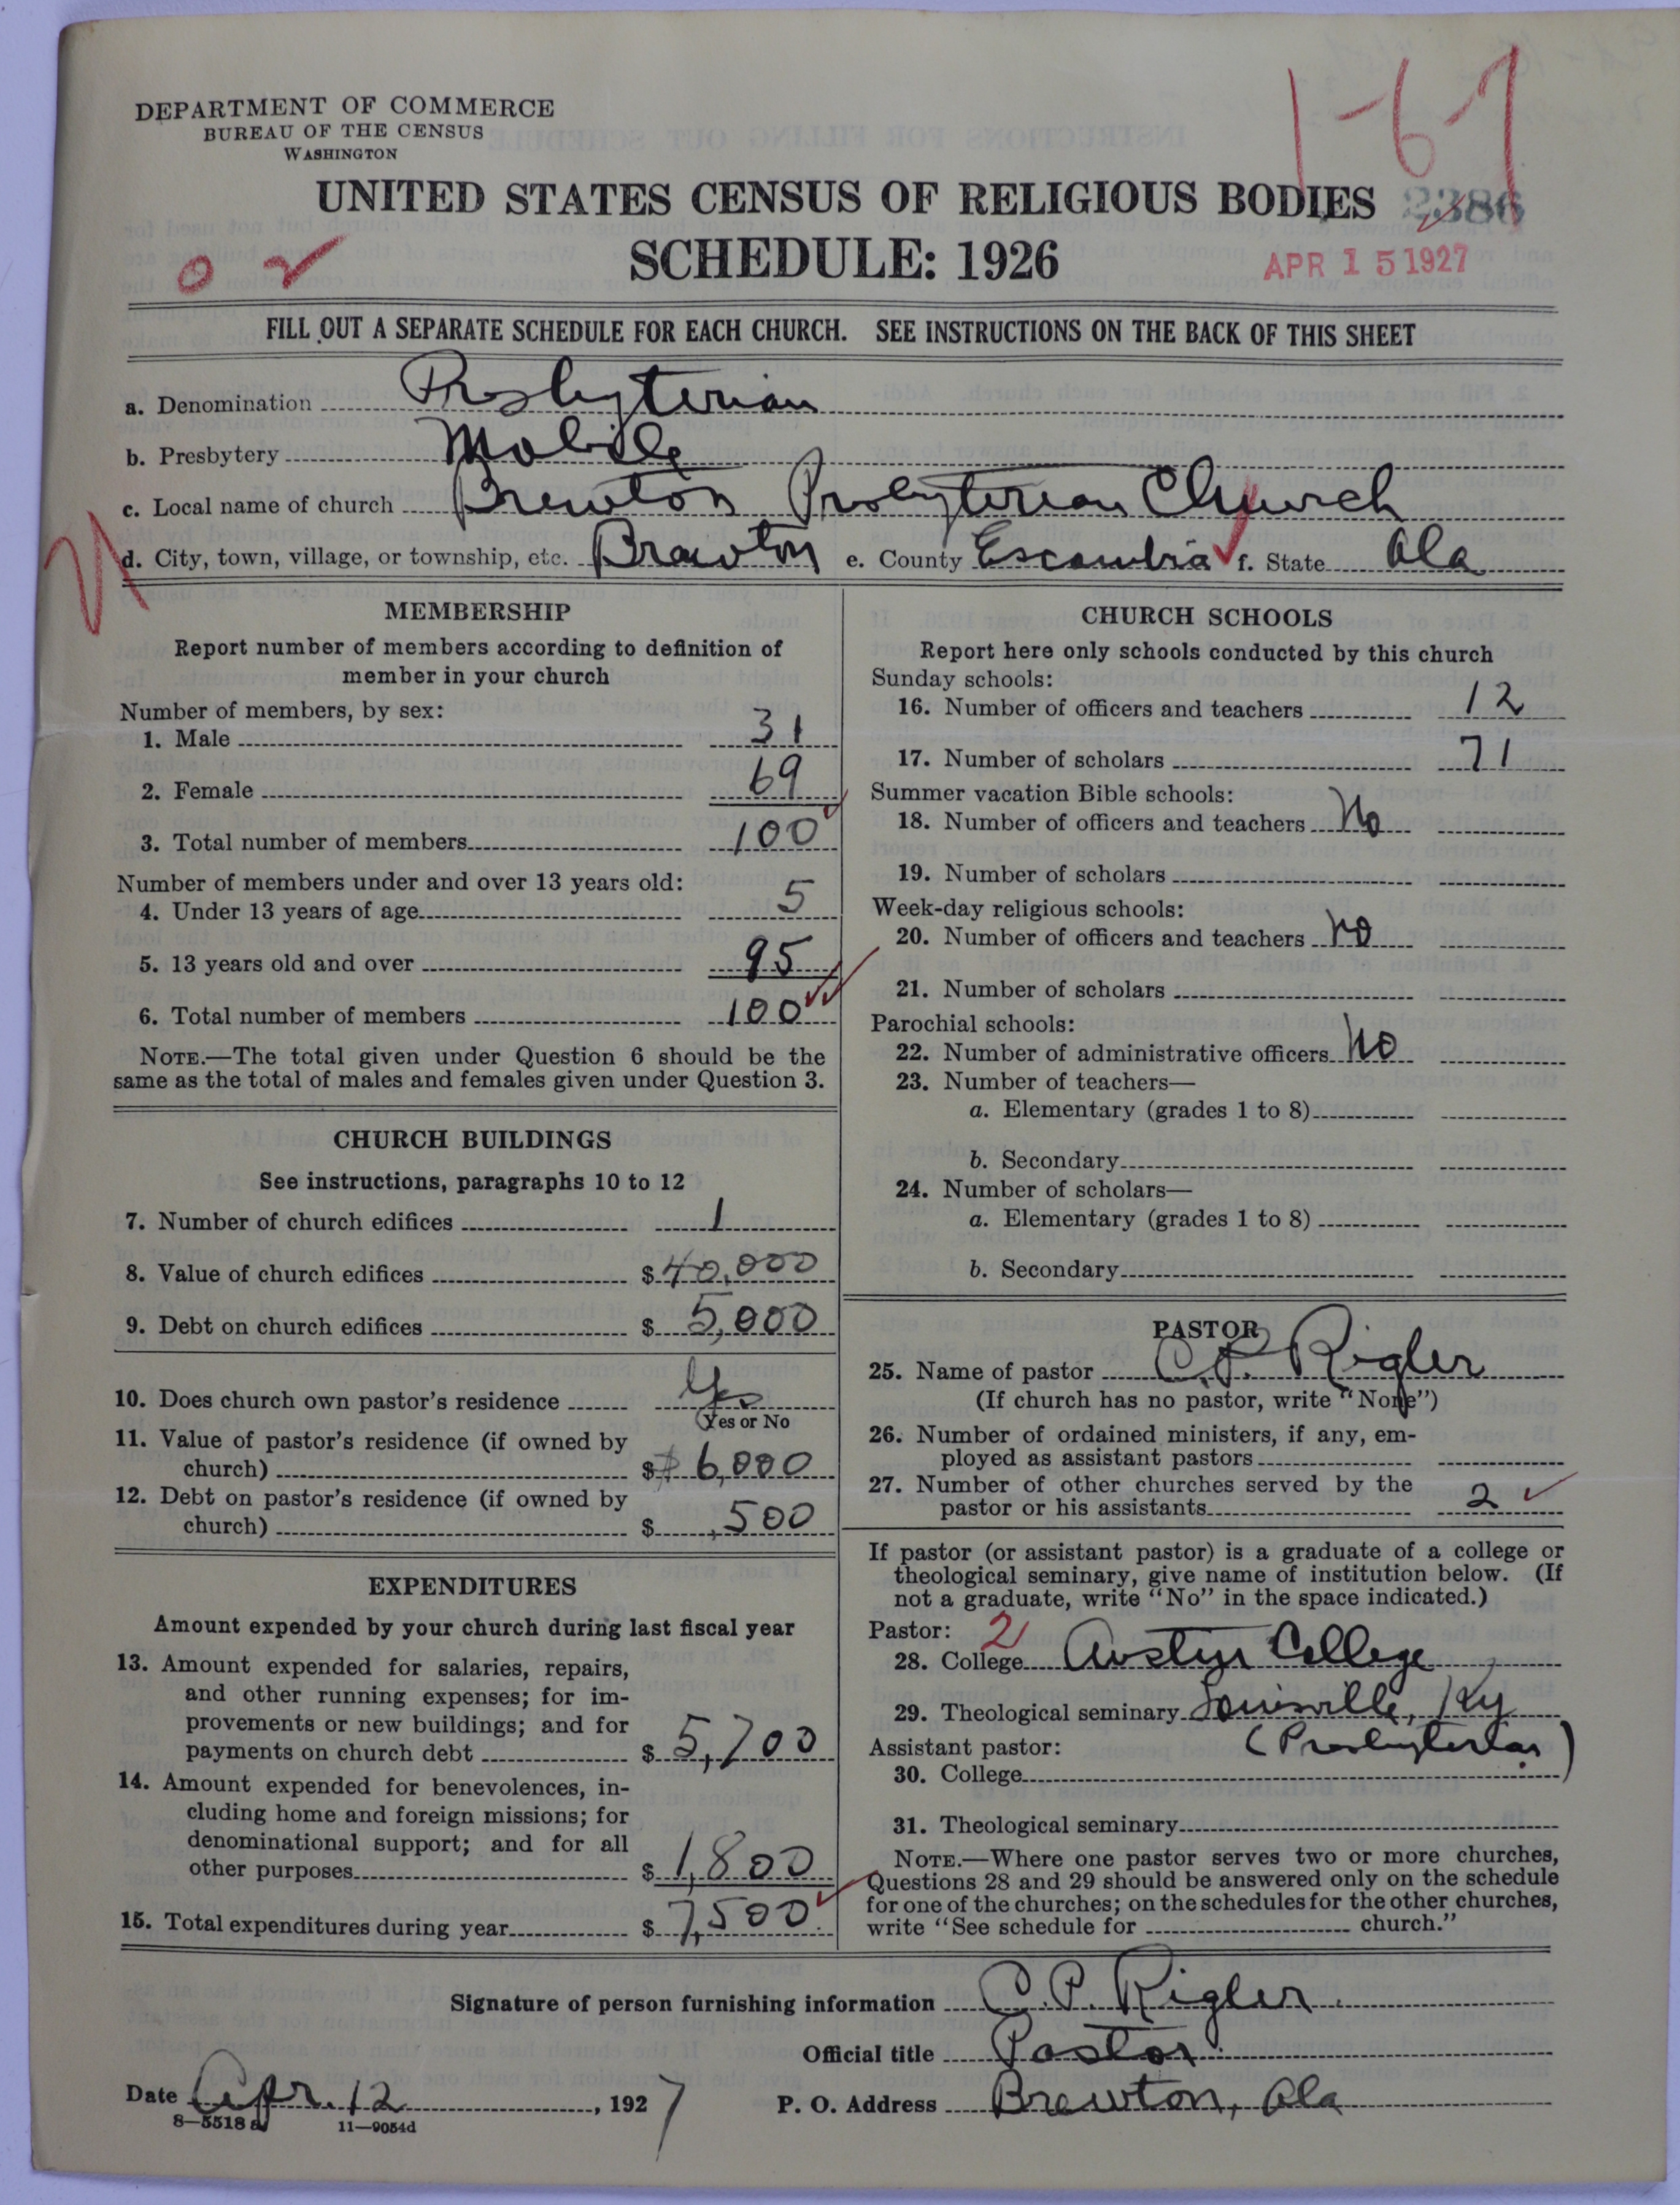 DEPARTMENT OF COMMERCE
BUREAU OF THE CENSUS
WASHINGTON
1-67
UNITED STATES CENSUS OF RELIGIOUS BODIES 2386
SCHEDULE: 1926
APR 15 1927
FILL OUT A SEPARATE SCHEDULE FOR EACH CHURCH. SEE INSTRUCTIONS ON THE BACK OF THIS SHEET
a. Denomination Presbyterian
b. Presbytery Mobile
c. Local name of church Brewton Presbyterian Church
d. City, town, village, or township, etc. Brewton e. County Escambia f. State Ala
MEMBERSHIP
Report number of members according to definition of
member in your church
Number of members, by sex:
1. Male 31
2. Female 69
3. Total number of members 100
Number of members under and over 13 years old:
4. Under 13 years of age 5
5. 13 years old and over 95
6. Total number of members 100
NOTE.—The total given under Question 6 should be the
same as the total of males and females given under Question 3.
CHURCH BUILDINGS
See instructions, paragraphs 10 to 12
7. Number of church edifices 1
8. Value of church edifices $40,000
9. Debt on church edifices $5,000
10. Does church own pastor's residence Yes
(Yes or No
11. Value of pastor's residence (if owned by
church) $6,000
12. Debt on pastor's residence (if owned by
church) $500
EXPENDITURES
Amount expended by your church during last fiscal year
13. Amount expended for salaries, repairs,
and other running expenses; for im-
provements or new buildings; and for
payments on church debt $5,700
14. Amount expended for benevolences, in-
cluding home and foreign missions; for
denominational support; and for all
other purposes $1,800
15. Total expenditures during year $7,500
CHURCH SCHOOLS
Report here only schools conducted by this church
Sunday schools:
16. Number of officers and teachers 12
17. Number of scholars 71
Summer vacation Bible schools:
18. Number of officers and teachers No
19. Number of scholars
Week-day religious schools:
20. Number of officers and teachers no
21. Number of scholars
Parochial schools:
22. Number of administrative officers No
23. Number of teachers—
a. Elementary (grades 1 to 8)
b. Secondary
24. Number of scholars—
a. Elementary (grades 1 to 8)
b. Secondary
PASTOR
25. Name of pastor C. P. Rigler
(If church has no pastor, write "None")
26. Number of ordained ministers, if any, em-
ployed as assistant pastors
27. Number of other churches served by the
pastor or his assistants 2
If pastor (or assistant pastor) is a graduate of a college or
theological seminary, give name of institution below. (If
not a graduate, write "No" in the space indicated.)
Pastor: 2
28. College Austin College
29. Theological seminary Louisville, Ky
Assistant pastor: (Presbyterian)
30. College
31. Theological seminary
NOTE.—Where one pastor serves two or more churches,
Questions 28 and 29 should be answered only on the schedule
for one of the churches; on the schedules for the other churches,
write "See schedule for church."
Signature of person furnishing information C. P. Rigler
Official title Pastor
Date Apr. 12, 1927 P. O. Address Brewton, Ala
8—5518 a 11—9054d